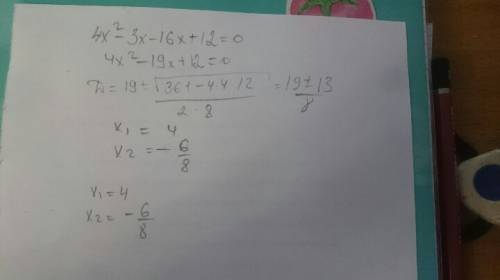 4x² - 3x - 16x + 12 = 0
4x² - 19x + 12 = 0
= 19 ± √361 - 4·4·12 / 2·8 = 19 ± 13 / 8
x₁ = 4
x₂ = - 6/8
x₁ = 4
x₂ = - 6/8